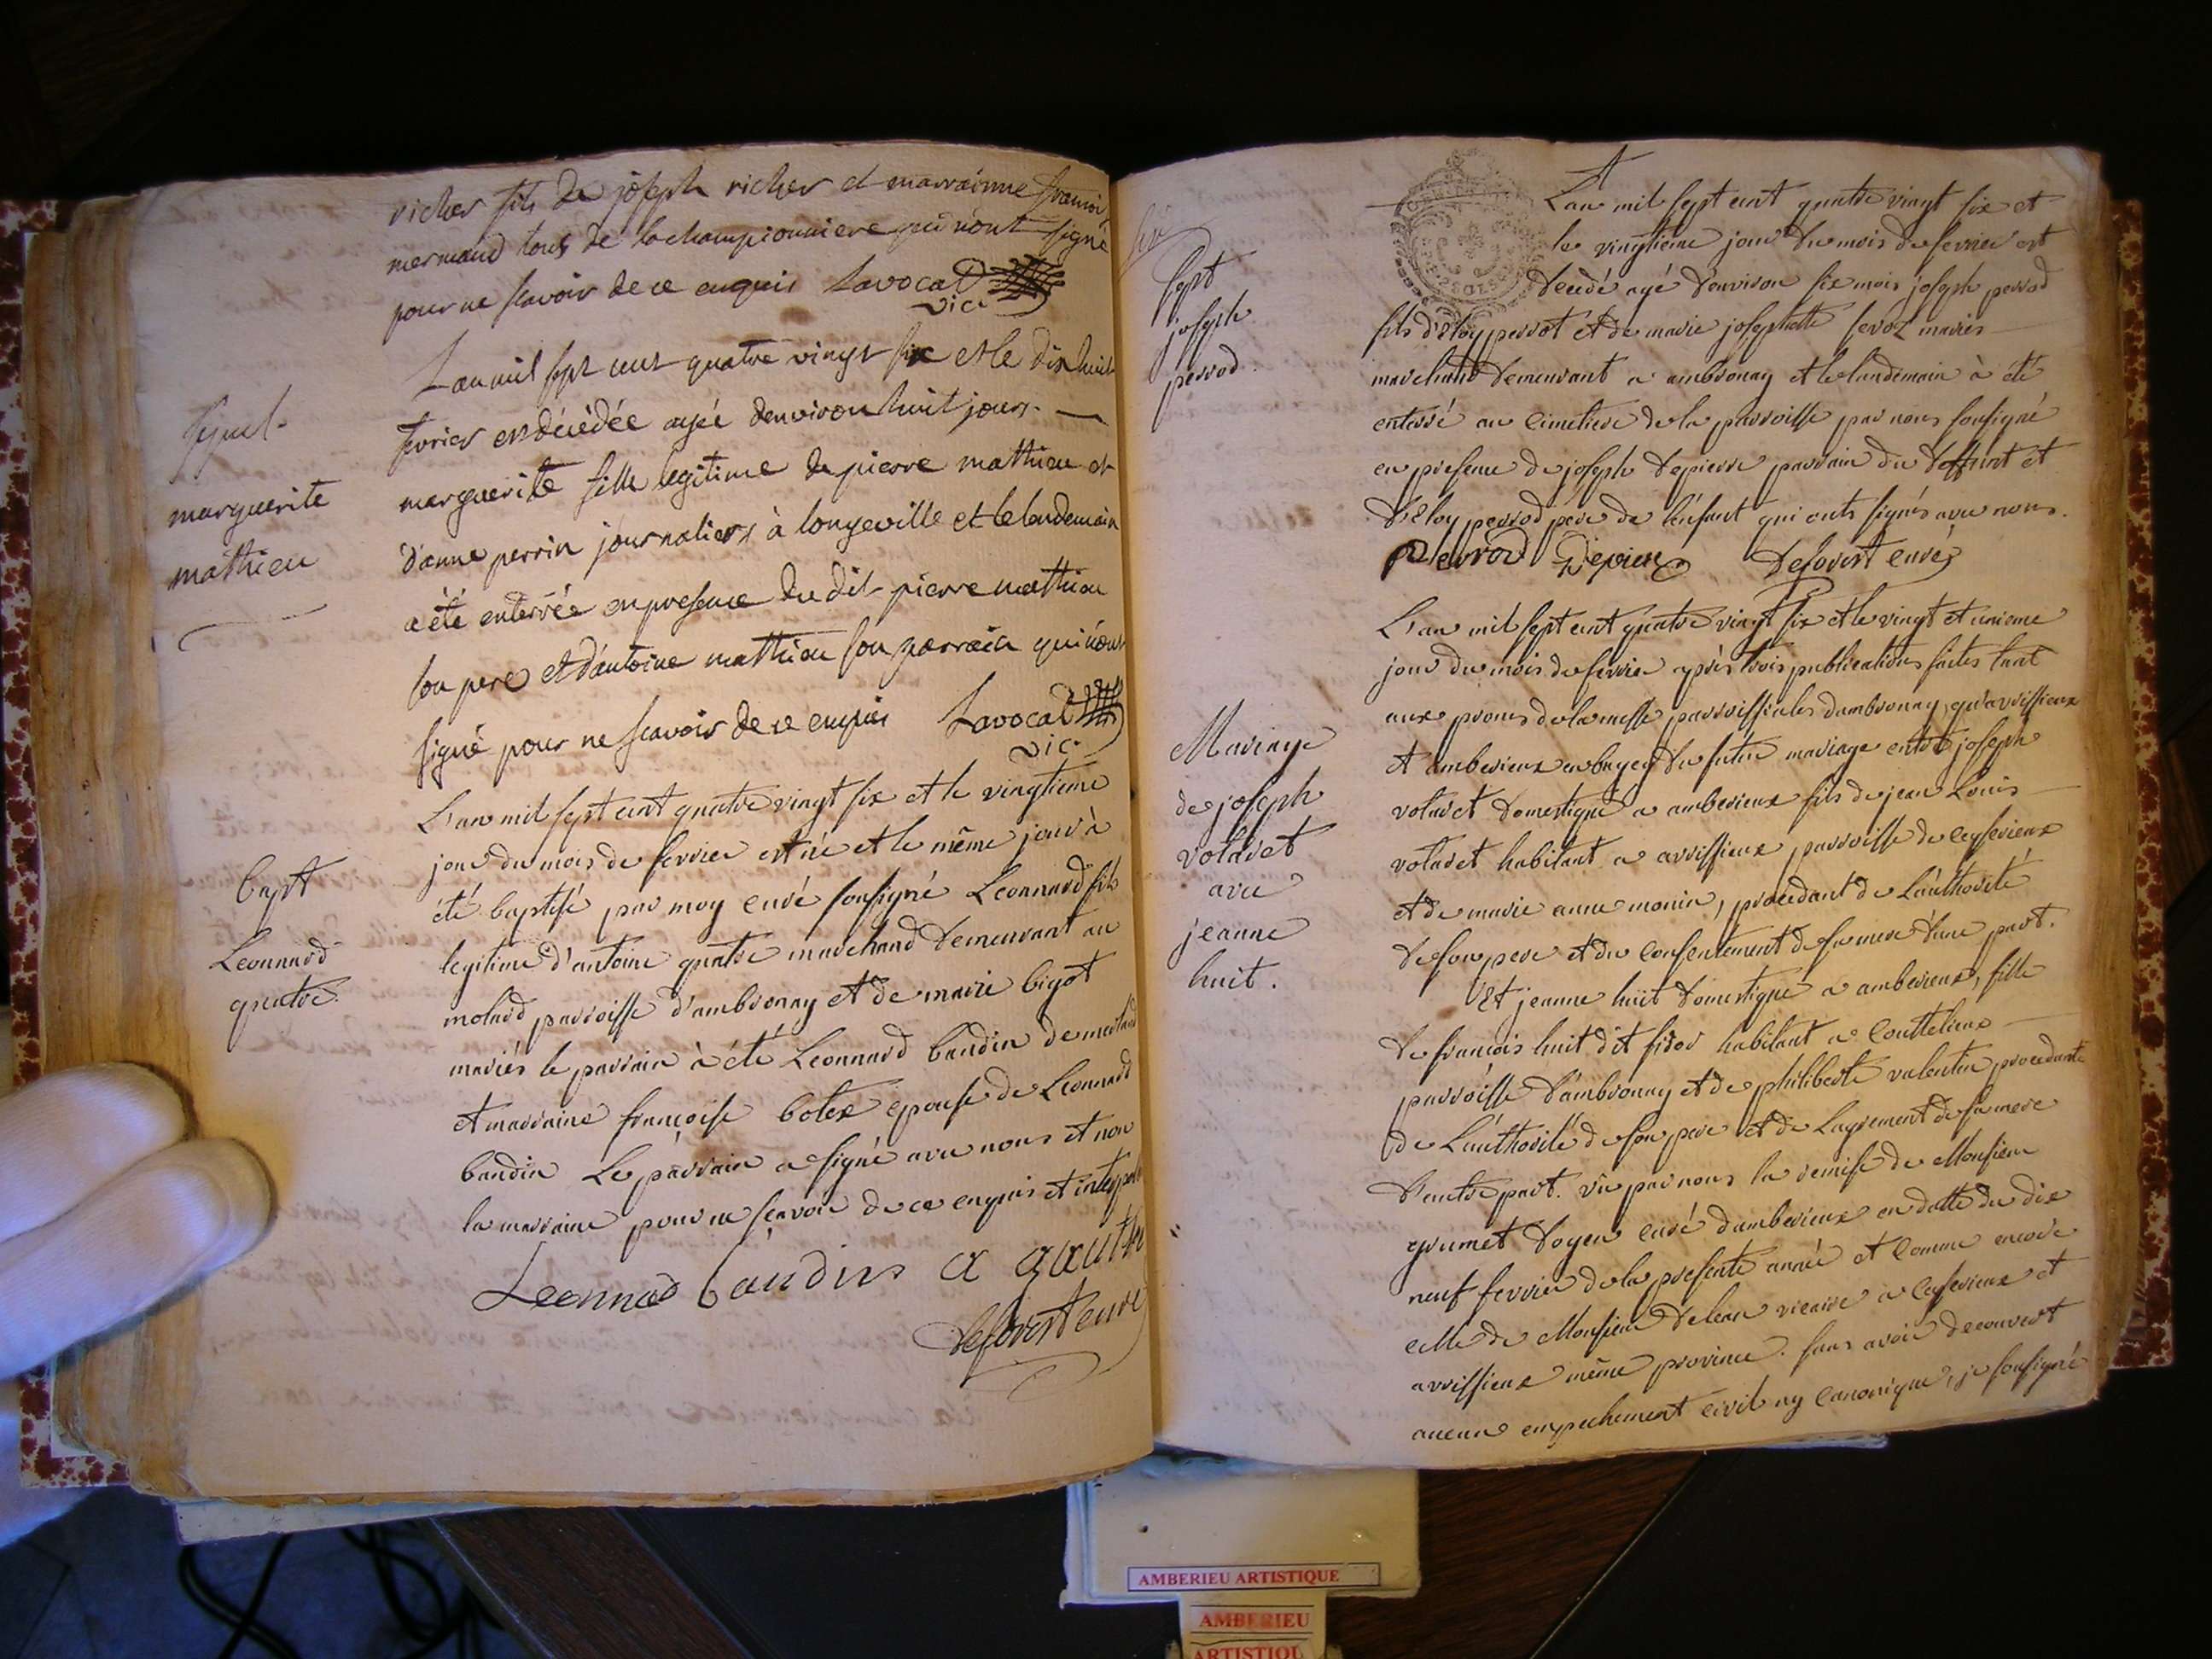 richer fils de joseph richer et marrainne
mermand tous de la championniere qui n'ont signé
pour ne scavoir de ce enquis Lavocat
vic.
Sepul.
marguerite
mathieu
L'an mil sept cent quatre vingt six et le dix huit
fevrier est décédée agée denviron huit jours
marguerite fille legitime de pierre mathieu et
d'anne perrin journaliers à longeville et le lendemain
a été enterrée en presence du dit pierre mathieu
son pere et d'antoine mathieu son parrain qui n'ont
signé pour ne scavoir de ce enquis Lavocat
vic.
bapt
Leonnard
quatre.
L'an mil sept cent quatre vingt six et le vingtieme
jour du mois de fevrier est né et le même jour à
été baptisé par moy curé sousigné Leonnard fils
legitime d'antoine quatre marchand demeurant au
molard parroisse d'ambronay et de marie bigot
mariés le parrain à été Leonnard baudin de
et marraine françoise botex epouse de Leonnard
baudin Le parrain a signé avec nous et non
la marraine pour ne scavoir de ce enquis et
Leonnard baudin a
Deforest curé
sept
joseph
perrod.
L'an mil sept cent quatre vingt six et
le vingtieme jour du mois de fevrier est
decedé agé d'environ six mois joseph perrod
fils d'Eloy perrot et de marie josephette mariés
marchand demeurant a ambronay et le landemain à été
enterré au Cimetiere de la parroisse par nous sousigné
en presence de joseph Depierre parrain du deffunt et
d'Eloy perrod pere de l'enfant qui onts signés avec nous.
Perrod Depierre Deforest curé
Mariage
de joseph
volaret
avec
jeanne
huit.
L'an mil sept cent quatre vingt six et le vingt et unieme
jour du mois de fevrier après trois publications faites tant
aux prones de la messe parroissiales dambronay qu'arrissieux
et amberieux en bugey du futur mariage entre joseph
volaret domestique a amberieux fils de jean Louis
volaret habitant a arrissieux parroisse de ceyserieux
et de marie anne monin, procedant de L'authorité
de son pere et du Consentement de sa mere d'une part.
Et jeanne huit domestique a amberieux, fille
de francois huit dit habitant a Coutelieux
parroisse d'ambronay et de philiberte valentin procedante
de L'authorité de son pere et de Lagrement de sa mere
d'autre part. vû par nous la remise de Monsieur
grumet doyen curé damberieux en datte du dix
neuf fevrier de la presente année et Comme encore
celle de Monsieur vicaire a Ceyserieux et
arrissieux même province. sans avoir decouvert
aucune empechement civil ny Canonique, je sousigné
AMBERIEU ARTISTIQUE
AMBERIEU
ARTISTIQU